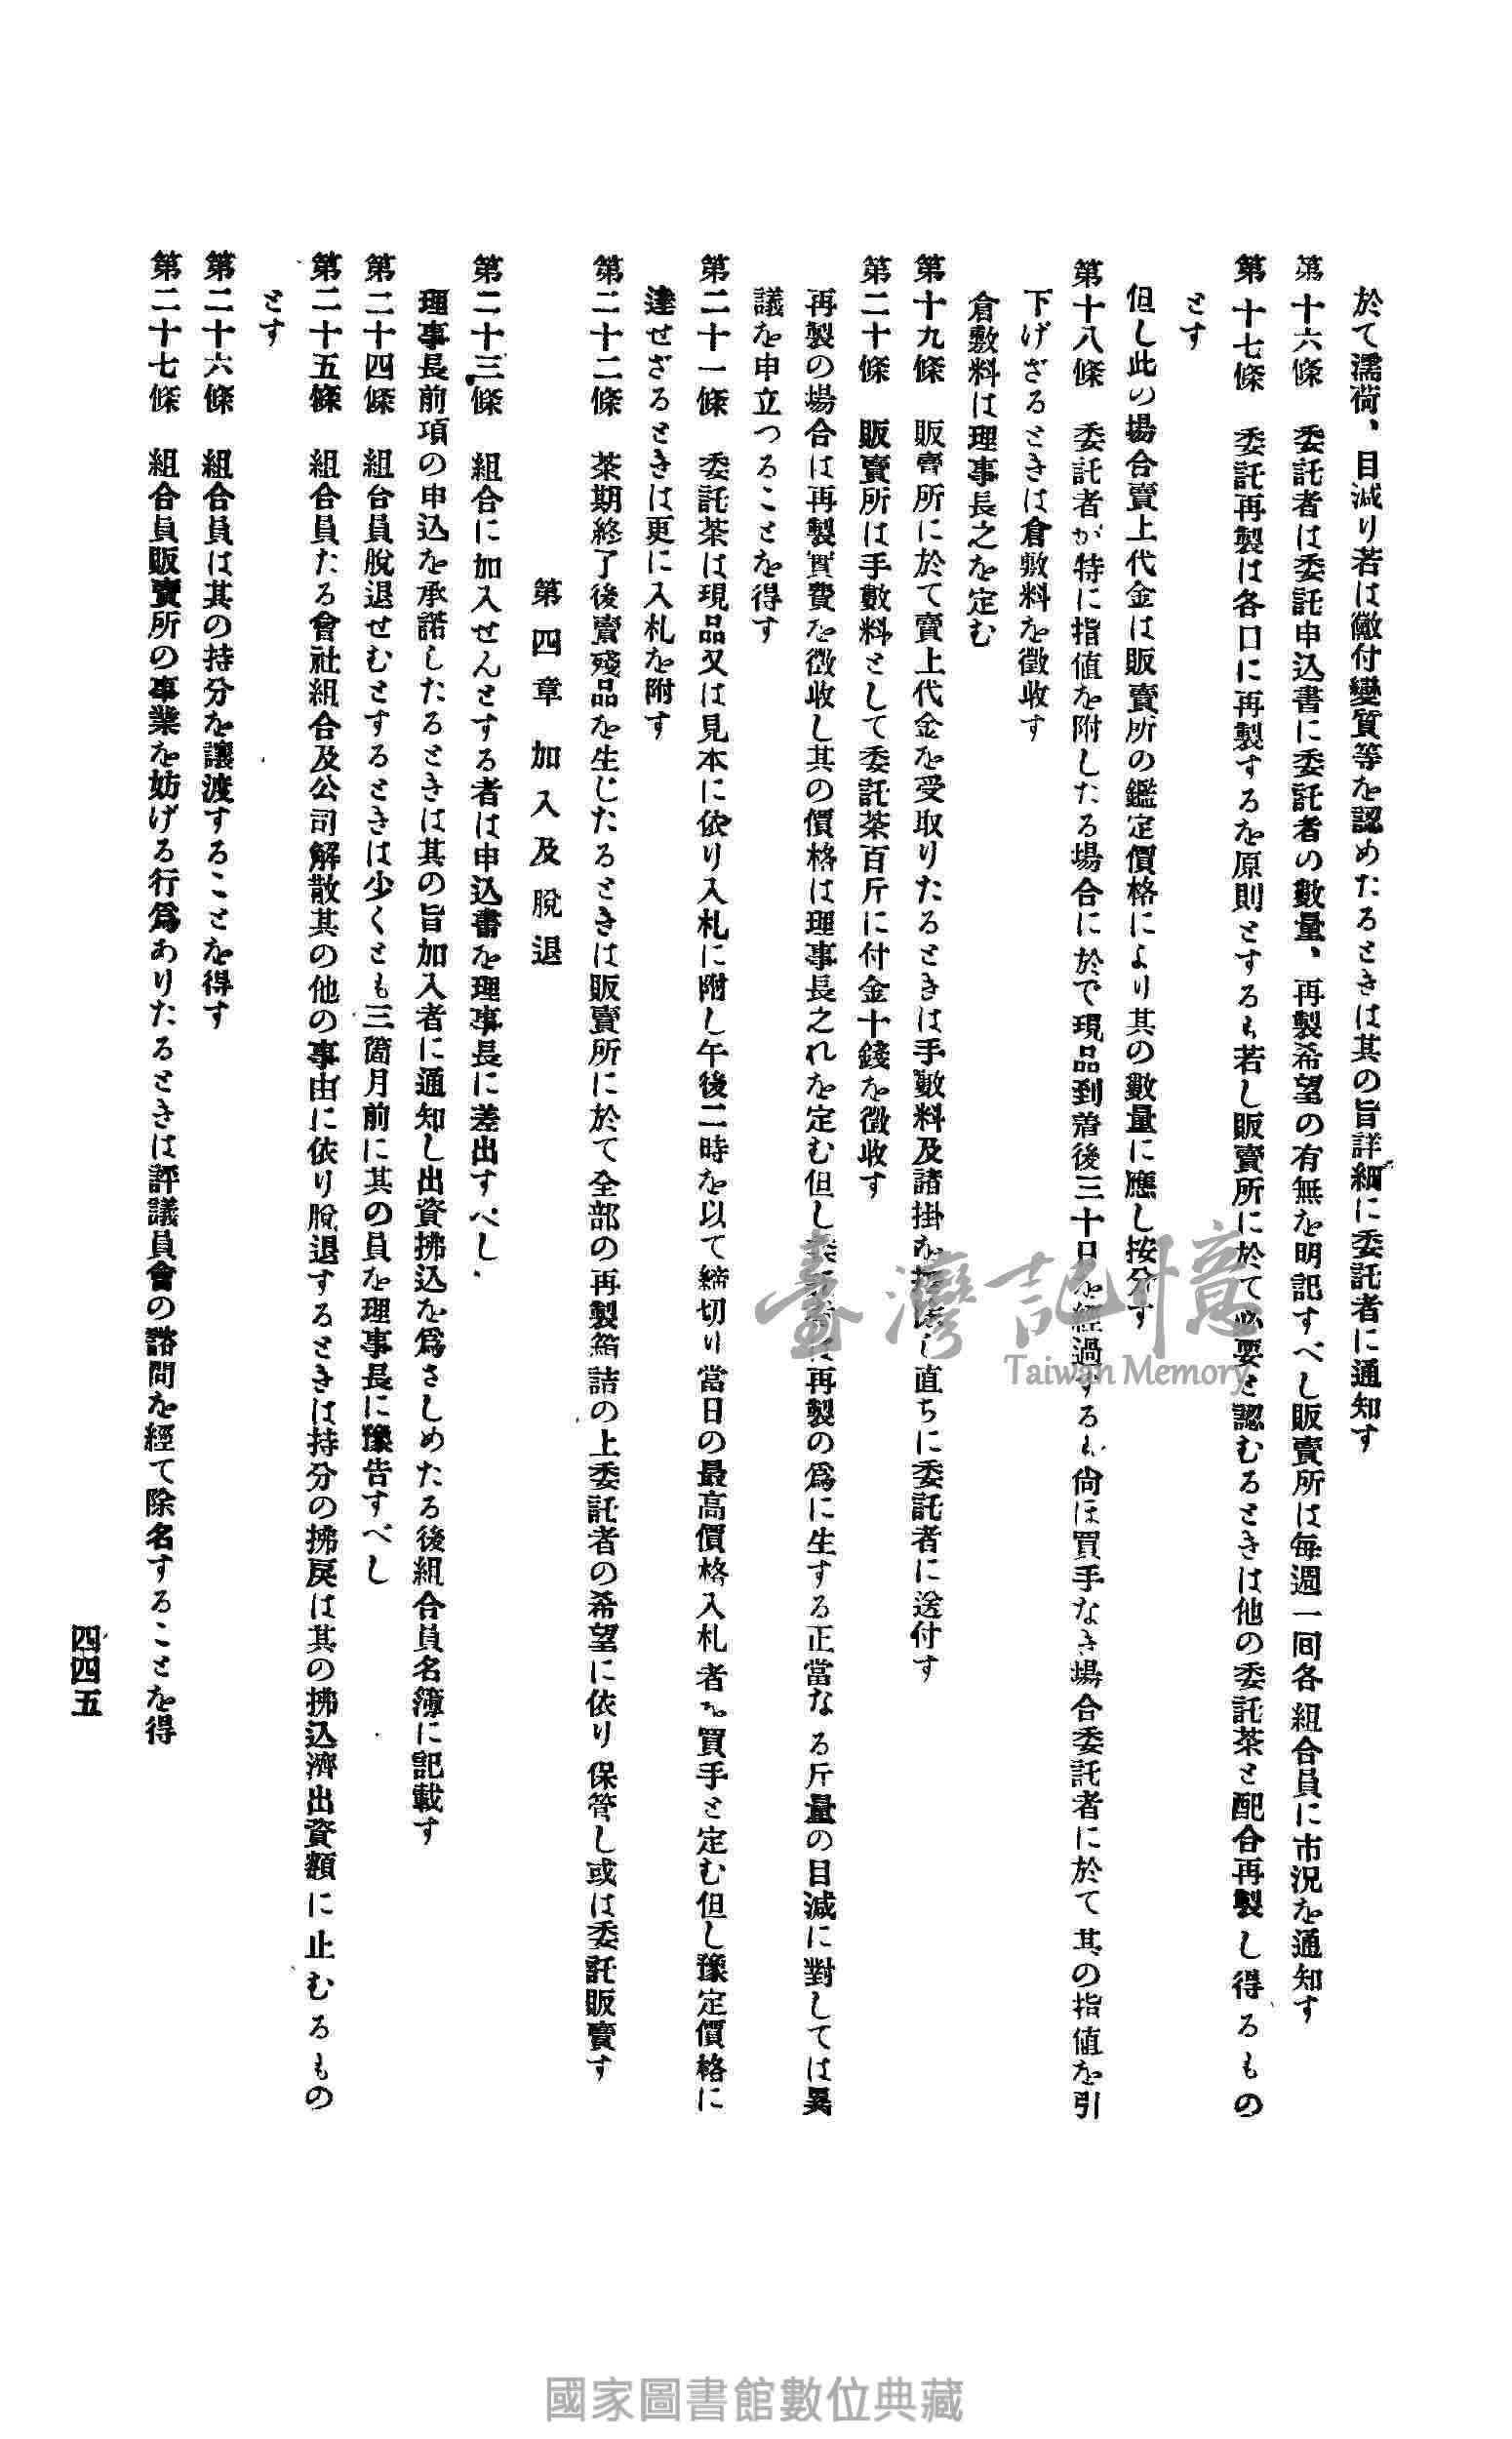 於て濡荷、目減り若は黴付變質等を認めたるときは其の旨詳細に委託者に通知す
第十六條　委託者は委託申込書に委託者の數量、再製希望の有無を明記すべし販賣所は毎週一回各組合員に市況を通知す
第十七條　委託再製は各口に再製するを原則とするも若し販賣所に於て必要と認むるときは他の委託茶と配合再製し得るもの
とす
但し此の場合賣上代金は販賣所の鑑定價格により其の數量に應し按分す
第十八條　委託者が特に指値を附したる場合に於て現品到着後三十日を經過するも尙ほ買手なき場合委託者に於て其の指値を引
下げざるときは倉敷料を徵收す
倉敷料は理事長之を定む
第十九條　販賣所に於て賣上代金を受取りたるときは手數料及諸掛を控除し直ちに委託者に送付す
第二十條　販賣所は手數料として委託茶百斤に付金十錢を徵收す
再製の場合は再製實費を徵收し其の價格は理事長之れを定む但し は再製の爲に生する正當なる斤量の目減に對しては異
議を申立つることを得す
第二十一條　委託茶は現品又は見本に依り入札に附し午後二時を以て締切り當日の最高價格入札者を買手と定む但し豫定價格に
達せざるときは更に入札を附す
第二十二條　茶期終了後賣殘品を生じたるときは販賣所に於て全部の再製箱詰の上委託者の希望に依り保管し或は委託販賣す
第四章　加入及脫退
第二十三條　組合に加入せんとする者は申込書を理事長に差出すべし
理事長前項の申込を承諾したるときは其の旨加入者に通知し出資拂込を爲さしめたる後組合員名簿に記載す
第二十四條　組合員脫退せむとするときは少くとも三箇月前に其の員を理事長に豫告すべし
第二十五條　組合員たる會社組合及公司解散其の他の事由に依り脫退するときは持分の拂戾は其の拂込濟出資額に止むるもの
とす
第二十六條　組合員は其の持分を讓渡することを得す
第二十七條　組合員販賣所の事業を妨げる行爲ありたるときは評議員會の諮問を經て除名することを得
四四五
臺灣記憶
Taiwan Memory
國家圖書館數位典藏